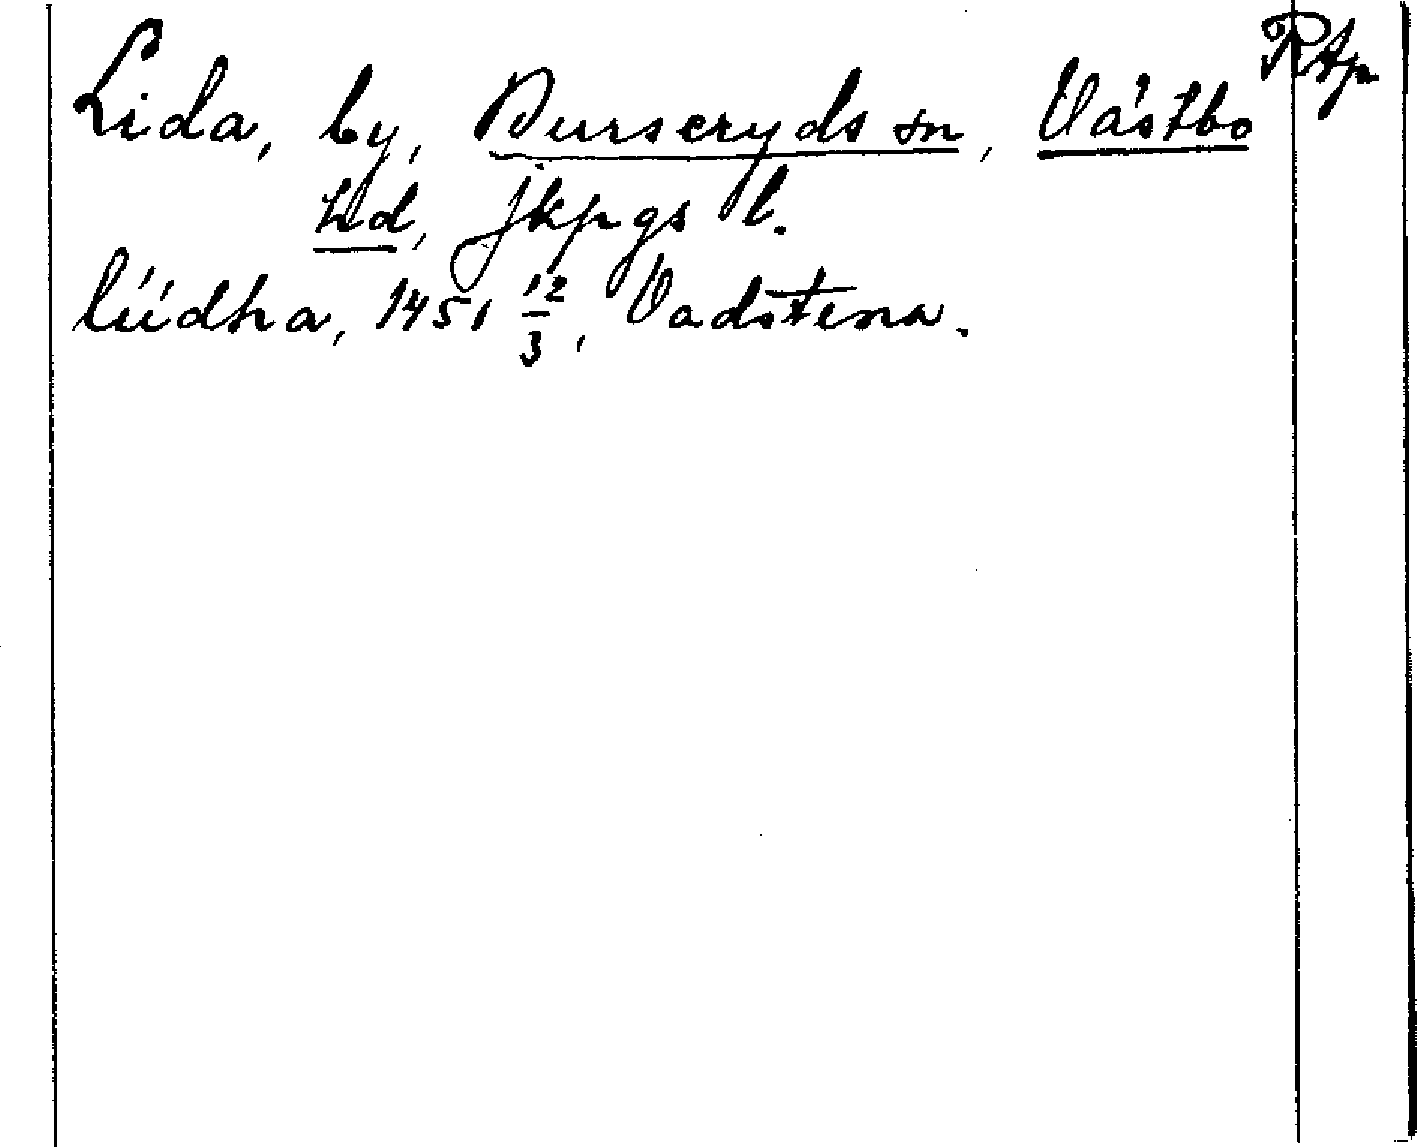 Rtp
Lida, by, Burseryds sn, Västbo
hd, Jkpgs l.
liidha, 1451 12/3, Vadstena.